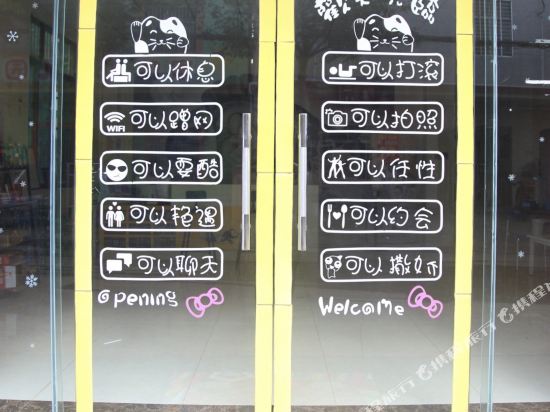 可以休息
WIFI 可以蹭网
可以耍酷
可以艳遇
可以聊天
opening
可以打滚
可以拍照
可以任性
可以约会
可以撒娇
Welcome
携程旅行